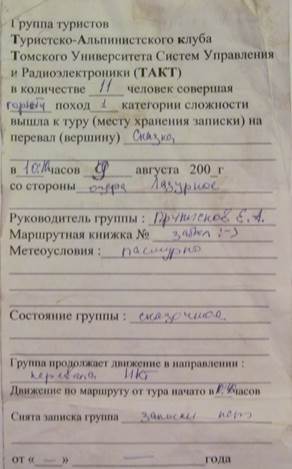 Группа туристов
Туристско-Альпинистского клуба
Томского Университета Систем Управления
и Радиоэлектроники (ТАКТ)
в количестве 11 человек совершая
горный поход 1 категории сложности
вышла к туру (месту хранения записки) на
перевал (вершину) Сказка,
в часов августа 200_г
со стороны озера Лазурное
Руководитель группы : Е.А.
Маршрутная книжка №
Метеоусловия : пасмурно
Состояние группы : сказочное.
Группа продолжает движение в направлении :
перевала ТКТ
Движение по маршруту от тура начато в часов
Снята записка группа записки нет
от « — » — года